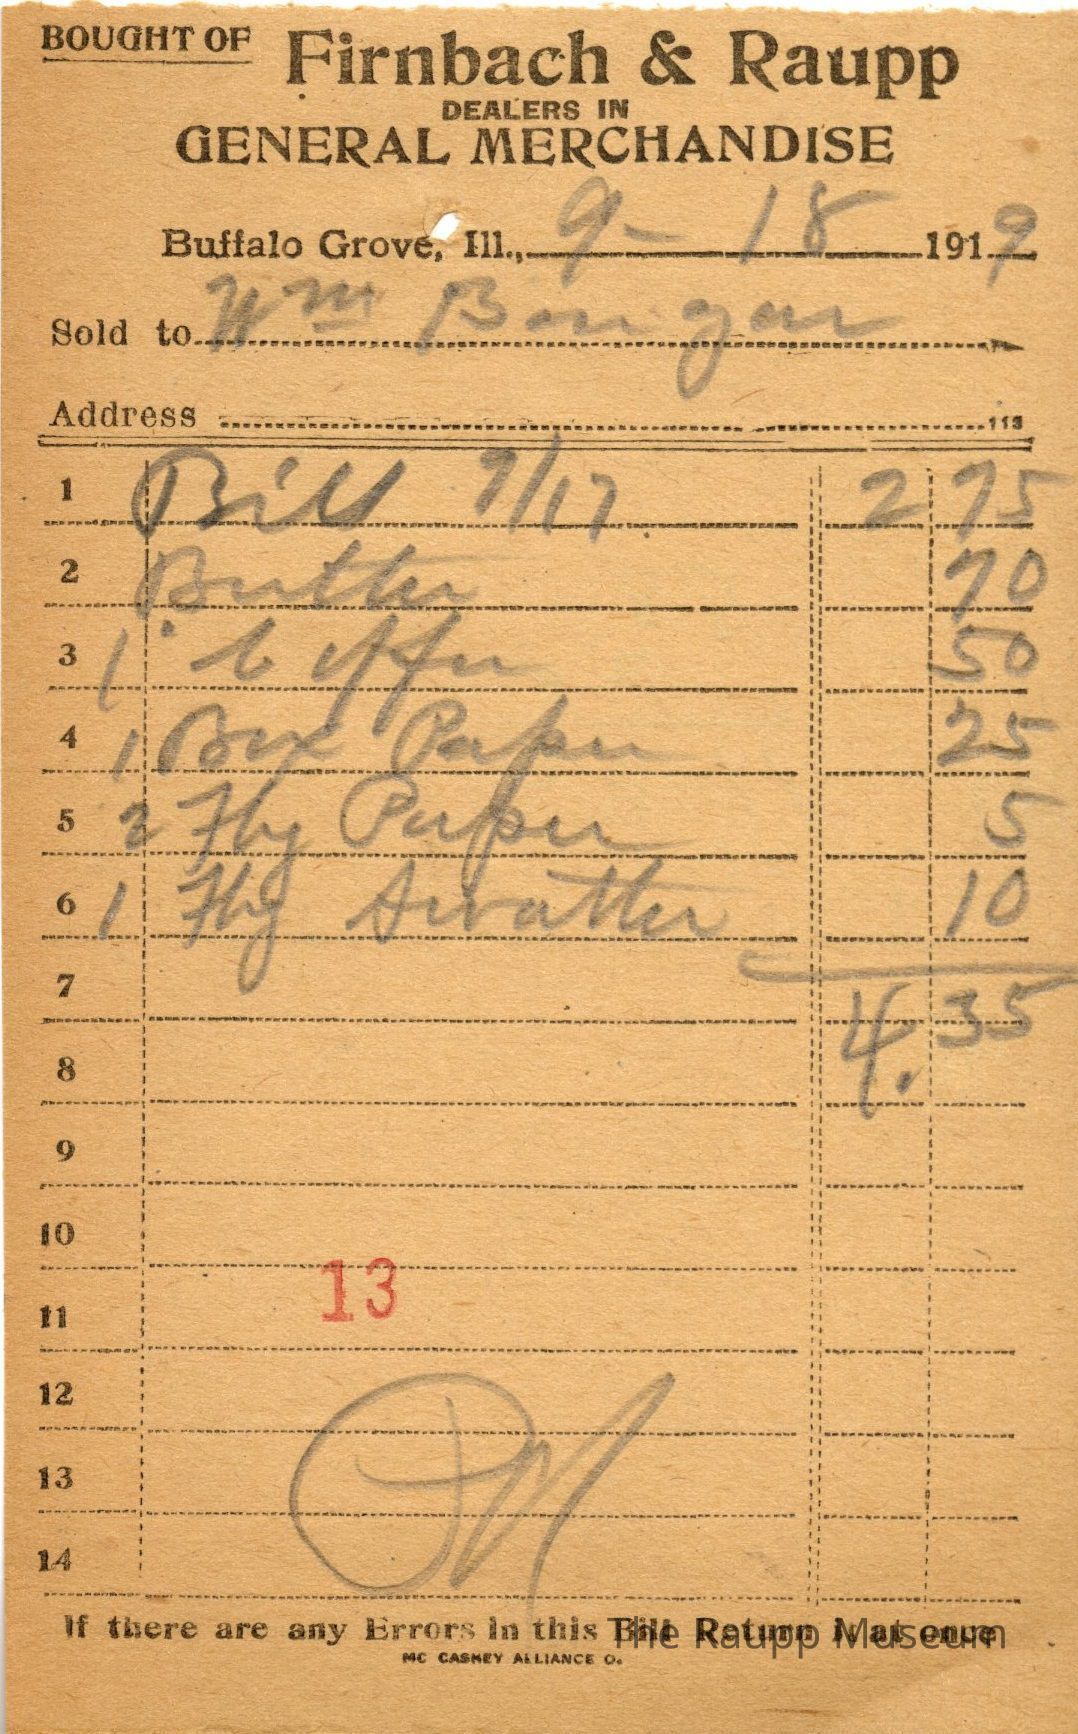 BOUGHT OF Firnbach & Raupp
DEALERS IN
GENERAL MERCHANDISE
Buffalo Grove, Ill., 9-18 1919
Sold to Wm
Address 113
1 Bill 9/17 2 75
2 Butter 70
3 1 Coffee 50
4 1 Box Paper 25
5 2 Fly Paper 5
6 1 Fly Swatter 10
7 4.35
8
9
10
13
11
12
13
14
If there are any Errors in this Bill Return it at once
The Raupp Museum
MC CASKEY ALLIANCE O.